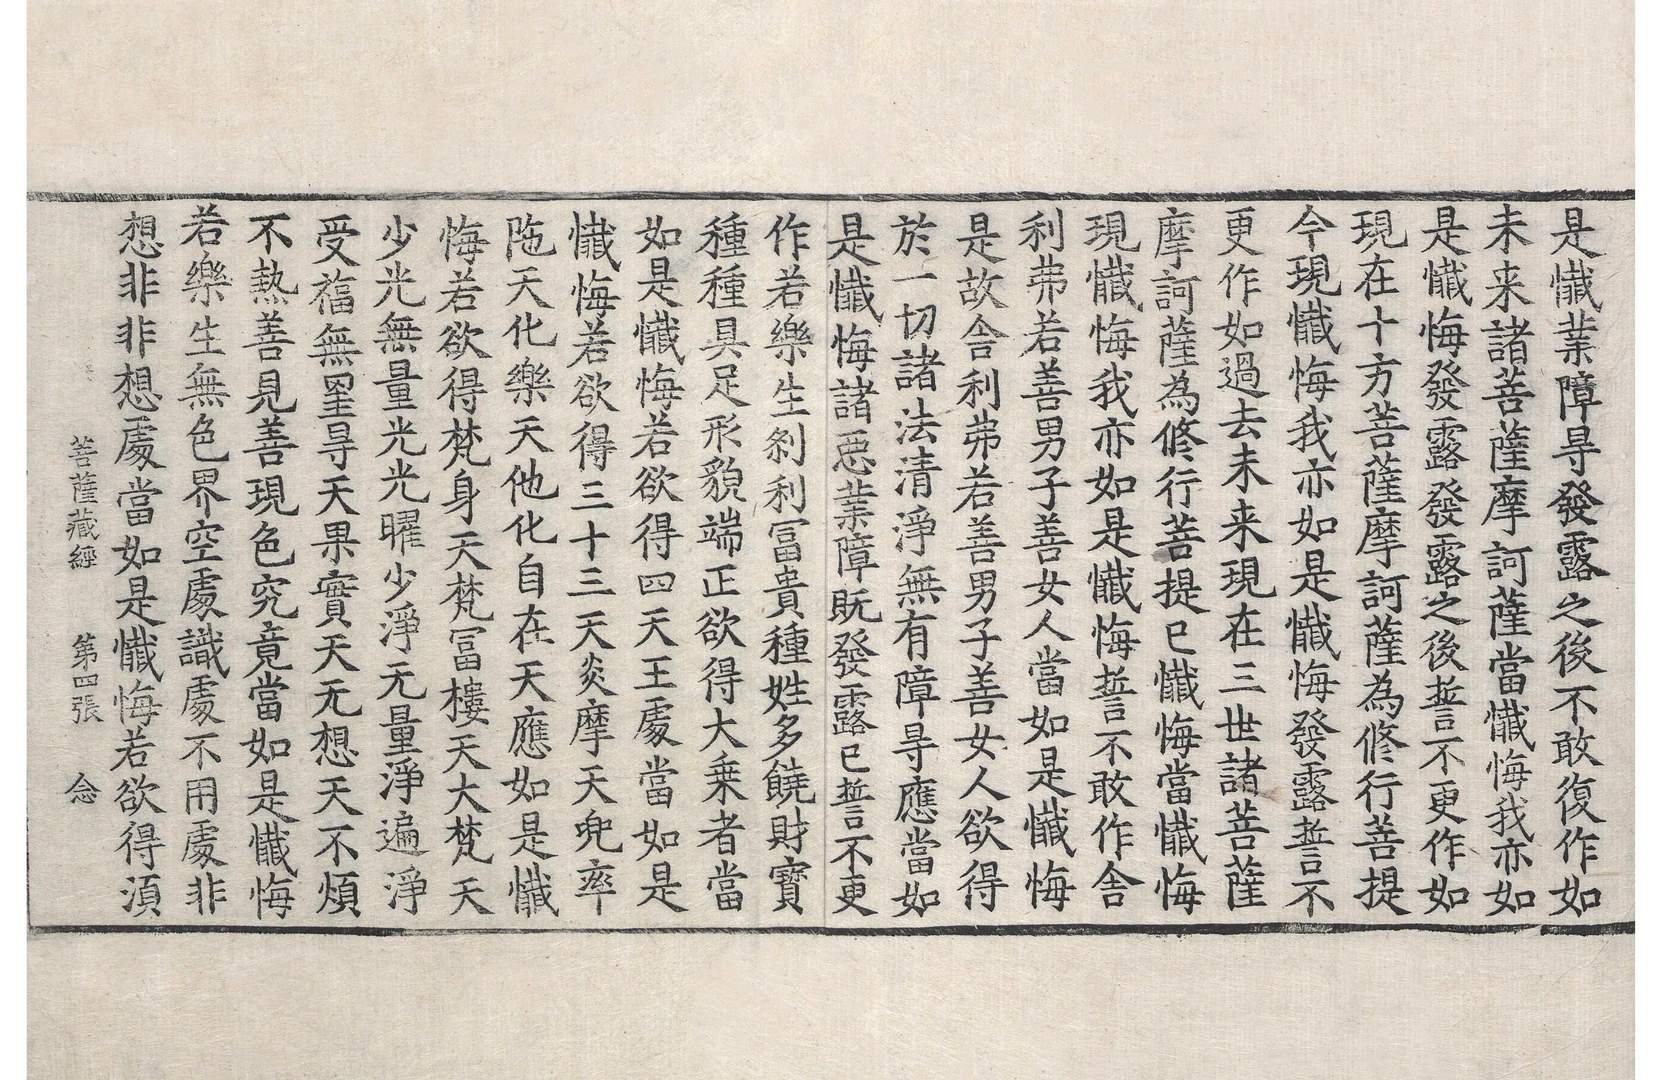 是懺業障㝵發露之後不敢復作如
未来諸菩薩摩訶薩當懺悔我亦如
是懺悔發露發露之後誓不更作如
現在十方菩薩摩訶薩為脩行菩提
今現懺悔我亦如是懺悔發露誓不
更作如過去未来現在三世諸菩薩
摩訶薩為脩行菩提已懺悔當懺悔
現懺悔我亦如是懺悔誓不敢作舍
利弗若善男子善女人當如是懺悔
是故舍利弗若善男子善女人欲得
於一切諸法清淨無有障㝵應當如
是懺悔諸惡業障既發露已誓不更
作若樂生剎利冨貴種姓多饒財寶
種種具足形貌端正欲得大乗者當
如是懺悔若欲得四天王處當如是
懺悔若欲得三十三天炎摩天兜率
陁天化樂天他化自在天應如是懺
悔若欲得梵身天梵冨樓天大梵天
少光無量光光曜少淨无量淨遍淨
受福無罣㝵天果實天无想天不煩
不熱善見善現色究竟當如是懺悔
若樂生無色界空處識處不用處非
想非非想處當如是懺悔若欲得湏
菩薩藏經 第四張 念